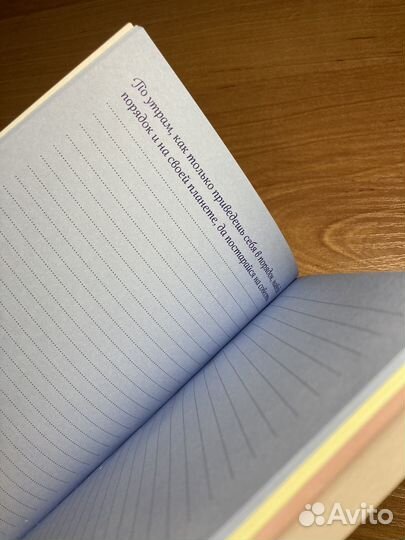 По утрам, как только приведешь себя в порядок,
порядок и на своей планете, да постарайся на
Avito